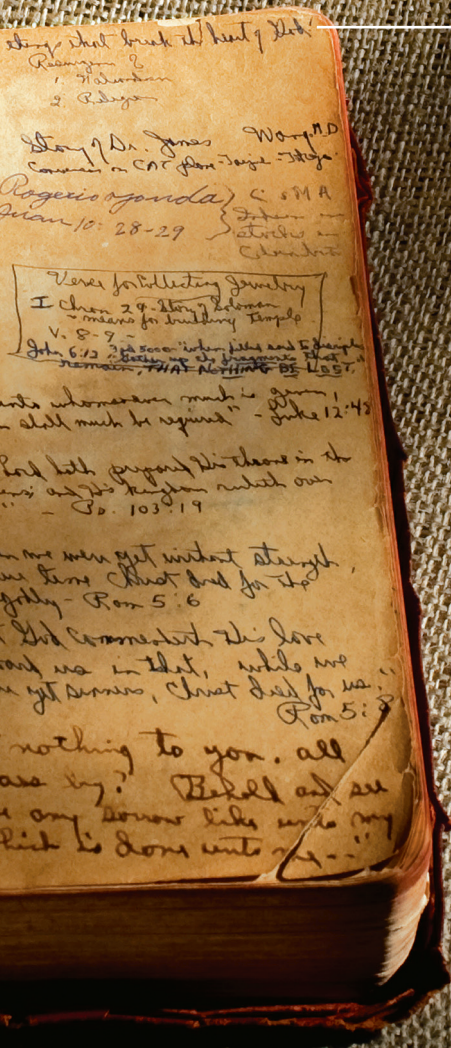 things that break the heart of God!
1. 
2. Religion
Story of Dr. James Wong M.D
Conversion on CAT plane - Taipei - Tokyo
Rogerio } C & MA
Juan 10: 28-29
stocks in
Verses for Collecting Jewelry
I Chron 29 - Story of Solomon
- means for building Temple
V. 8-9 -
John 6:12 "when filled said to disciples
"Gather up the fragments that
remain, THAT NOTHING BE LOST."
unto whomsoever much is given,
shall much be required" - Luke 12:48
Lord hath prepared His throne in the
and His kingdom ruleth over
" - Ps. 103:19
n we were yet without strength,
time Christ died for the
godly - Rom 5:6
God commendeth His love
ward us in that, while we
yet sinners, Christ died for us."
Rom 5:8
nothing to you, all
ass by? Behold and see
any sorrow like unto my
hich is done unto me --"